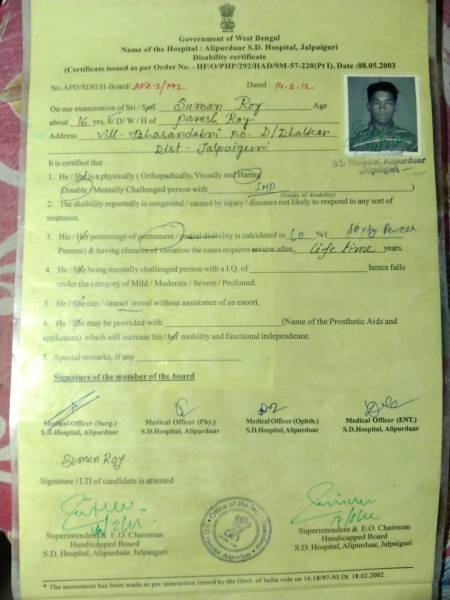 Government of West Bengal
Name of the Hospital : Alipurduar S.D. Hospital, Jalpaiguri
Disability certificate
(Certificate issued as per Order No. - HF/O/PHP/292/HAD/9M-57-220(Pt I), Date :08.05.2003
No.APD/SDH/H-Board/ Dated : 14.2.12
On our examination of Sri / Smt. Suman Roy Age
about 16 yrs, S/ D/ W/ H of Paresh Roy
Address Vill- P.O.
Dist- Jalpaiguri
It is certified that :
1. He / She is a physically ( Orthopadically, Visually and Haring
Disable / Mentally Challenged person with SND
(Name of disability)
2. The disability reportedly is congenital / caused by injury / diseases not likely to respond to any sort of
treatment.
3. His / Her percentage of permanent / partial disability is calculated as 60 %(
Percent) & having chances of variation the cases requires review after Life time years.
4. He / She being mentally challenged person with a I.Q. of hence falls
under the category of Mild / Moderate / Severe / Profound.
5. He / She can / cannot travel without assistance of an escort.
6. He / She may be provided with (Name of the Prosthetic Aids and
appliances) which will increase his / her mobility and functional independence.
7. Special remarks, if any
Signature of the member of the board
Medical Officer (Surg.) Medical Officer (Phy.) Medical Officer (Ophth.) Medical Officer (ENT.)
S.D.Hospital, Alipurduar S.D.Hospital, Alipurduar S.D.Hospital, Alipurduar S.D.Hospital, Alipurduar
Suman Roy
Signature / LTI of candidate is attested
Superintendent & E.O. Chairman Superintendent & E.O. Chairman
Handicapped Board Handicapped Board
S. D. Hospital, Alipurduar, Jalpaiguri S. D. Hospital, Alipurduar, Jalpaiguri
S.D. Hospital, Alipurduar
Jalpaiguri
* The assessment has been made as per instruction issued by the Govt. of India vide on 16.18/97-NI Dt. 18.02.2002.